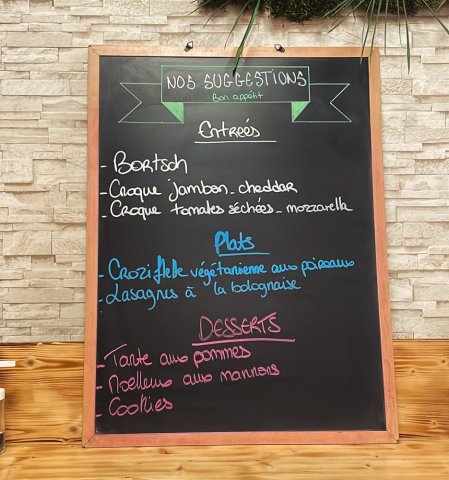 NOS SUGGESTIONS
Bon appétit
Entreés
- Bortsch
- Croque jambon - cheddar
- Croque tomates séchées - mozzarella
Plats
- Croziflette végétarienne aux poireaux
- Lasagnes à la bolognaise
DESSERTS
- Tarte aux pommes
- Moelleux aux marrons
- Cookies